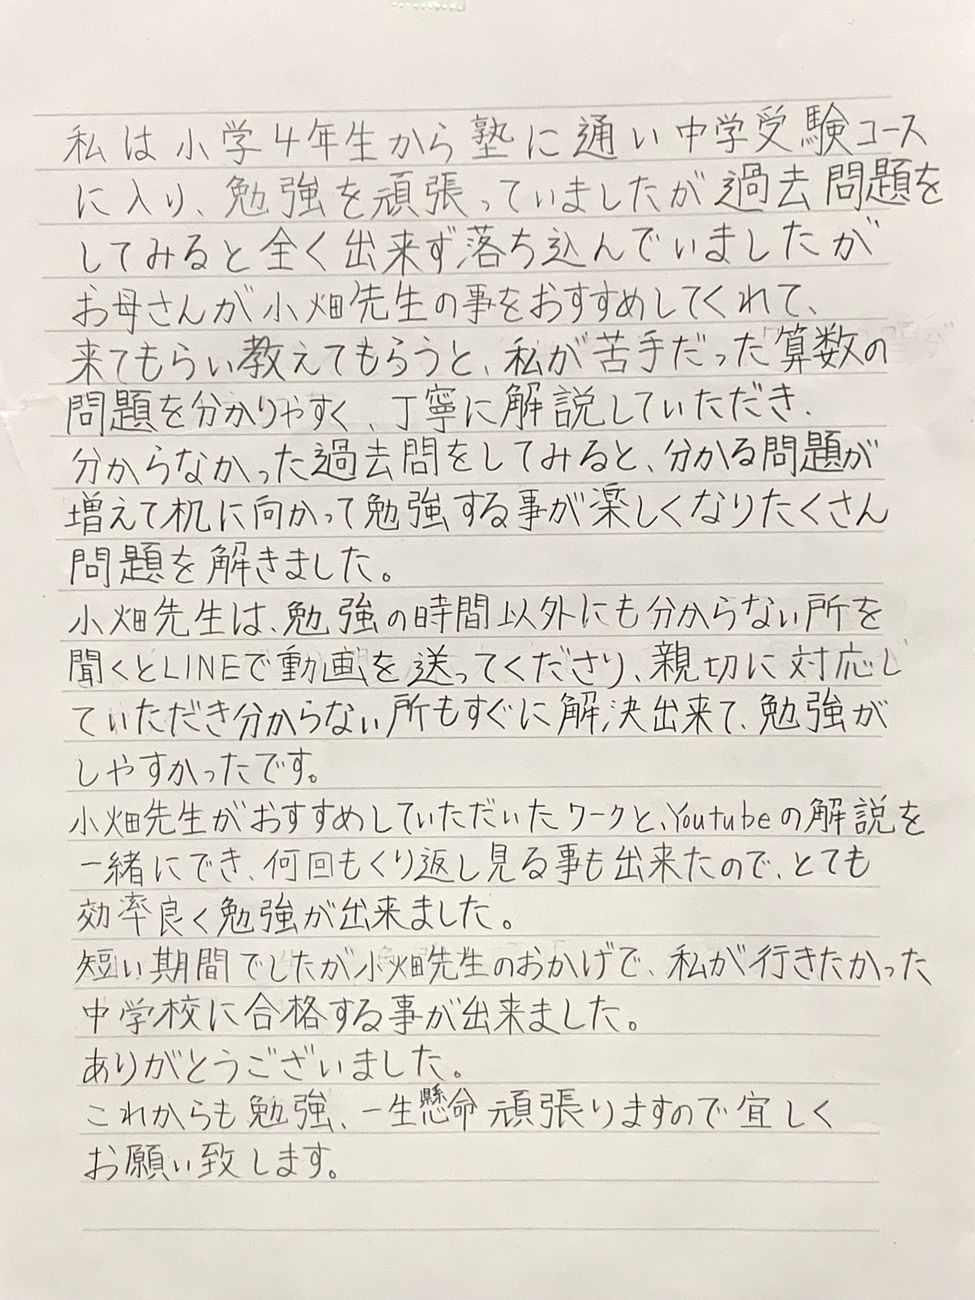 私は小学4年生から塾に通い中学受験コース
に入り、勉強を頑張っていましたが過去問題を
してみると全く出来ず落ち込んでいましたが
お母さんが小畑先生の事をおすすめしてくれて、
来てもらい教えてもらうと、私が苦手だった算数の
問題を分かりやすく、丁寧に解説していただき、
分からなかった過去問をしてみると、分かる問題が
増えて机に向かって勉強する事が楽しくなりたくさん
問題を解きました。
小畑先生は、勉強の時間以外にも分からない所を
聞くとLINEで動画を送ってくださり、親切に対応し
ていただき分からない所もすぐに解決出来て、勉強が
しやすかったです。
小畑先生がおすすめしていただいたワークと、Youtubeの解説を
一緒にでき、何回もくり返し見る事も出来たので、とても
効率良く勉強が出来ました。
短い期間でしたが小畑先生のおかげで、私が行きたかった
中学校に合格する事が出来ました。
ありがとうございました。
これからも勉強、一生懸命頑張りますので宜しく
お願い致します。